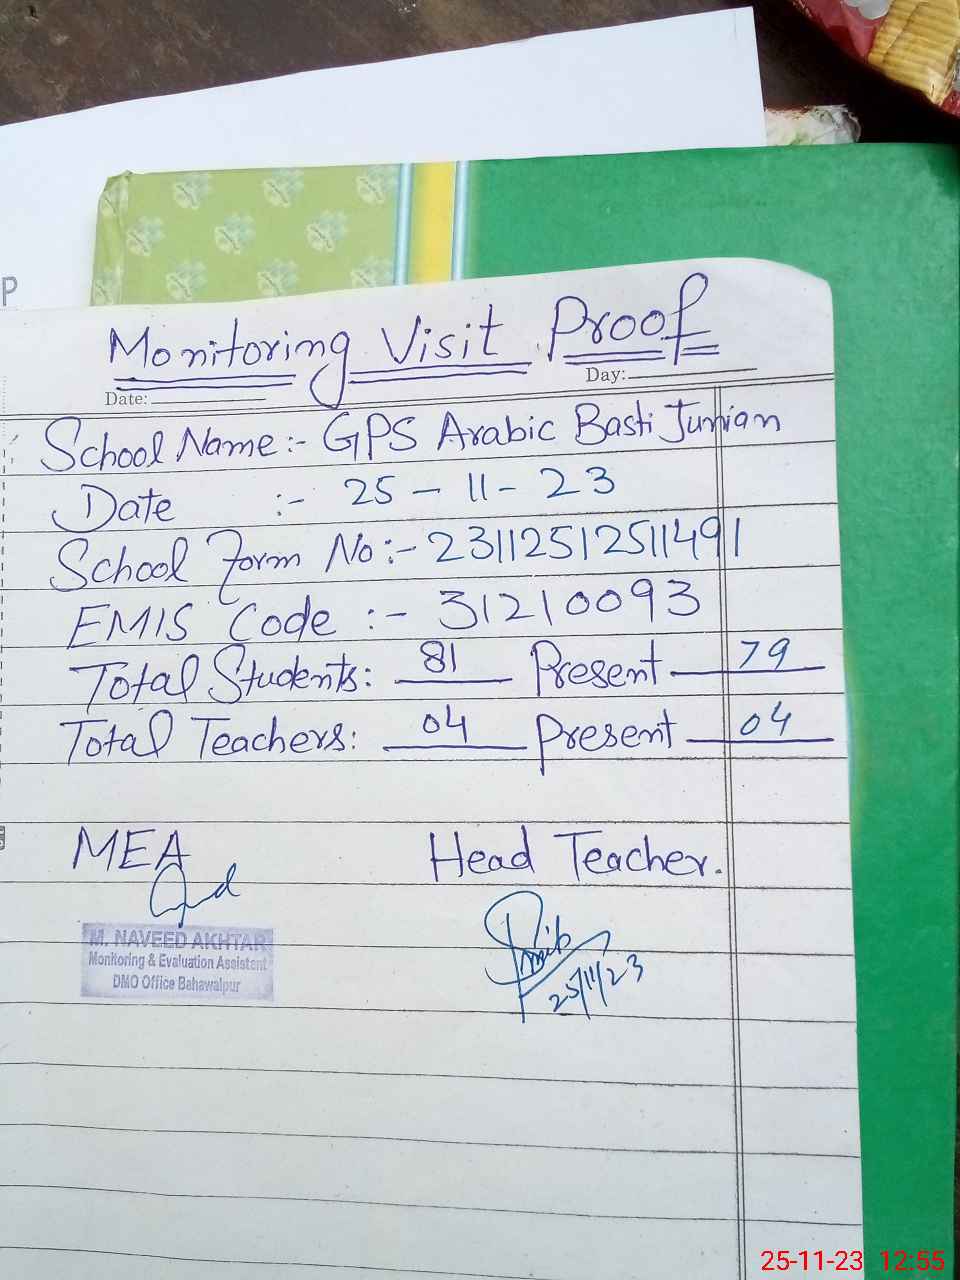 P
Monitoring Visit Proof
Day:
Date:
School Name:- GPS Arabic Basti Junian
Date :- 25 - 11 - 23
School Form No:- 23112512511491
EMIS Code :- 31210093
Total Students: 81 Present 79
Total Teachers: 04 Present 04
MEA Head Teacher.
M. NAVEED AKHTAR
Monitoring & Evaluation Assistent
DMO Office Bahawalpur
25/11/23
25-11-23 12:55